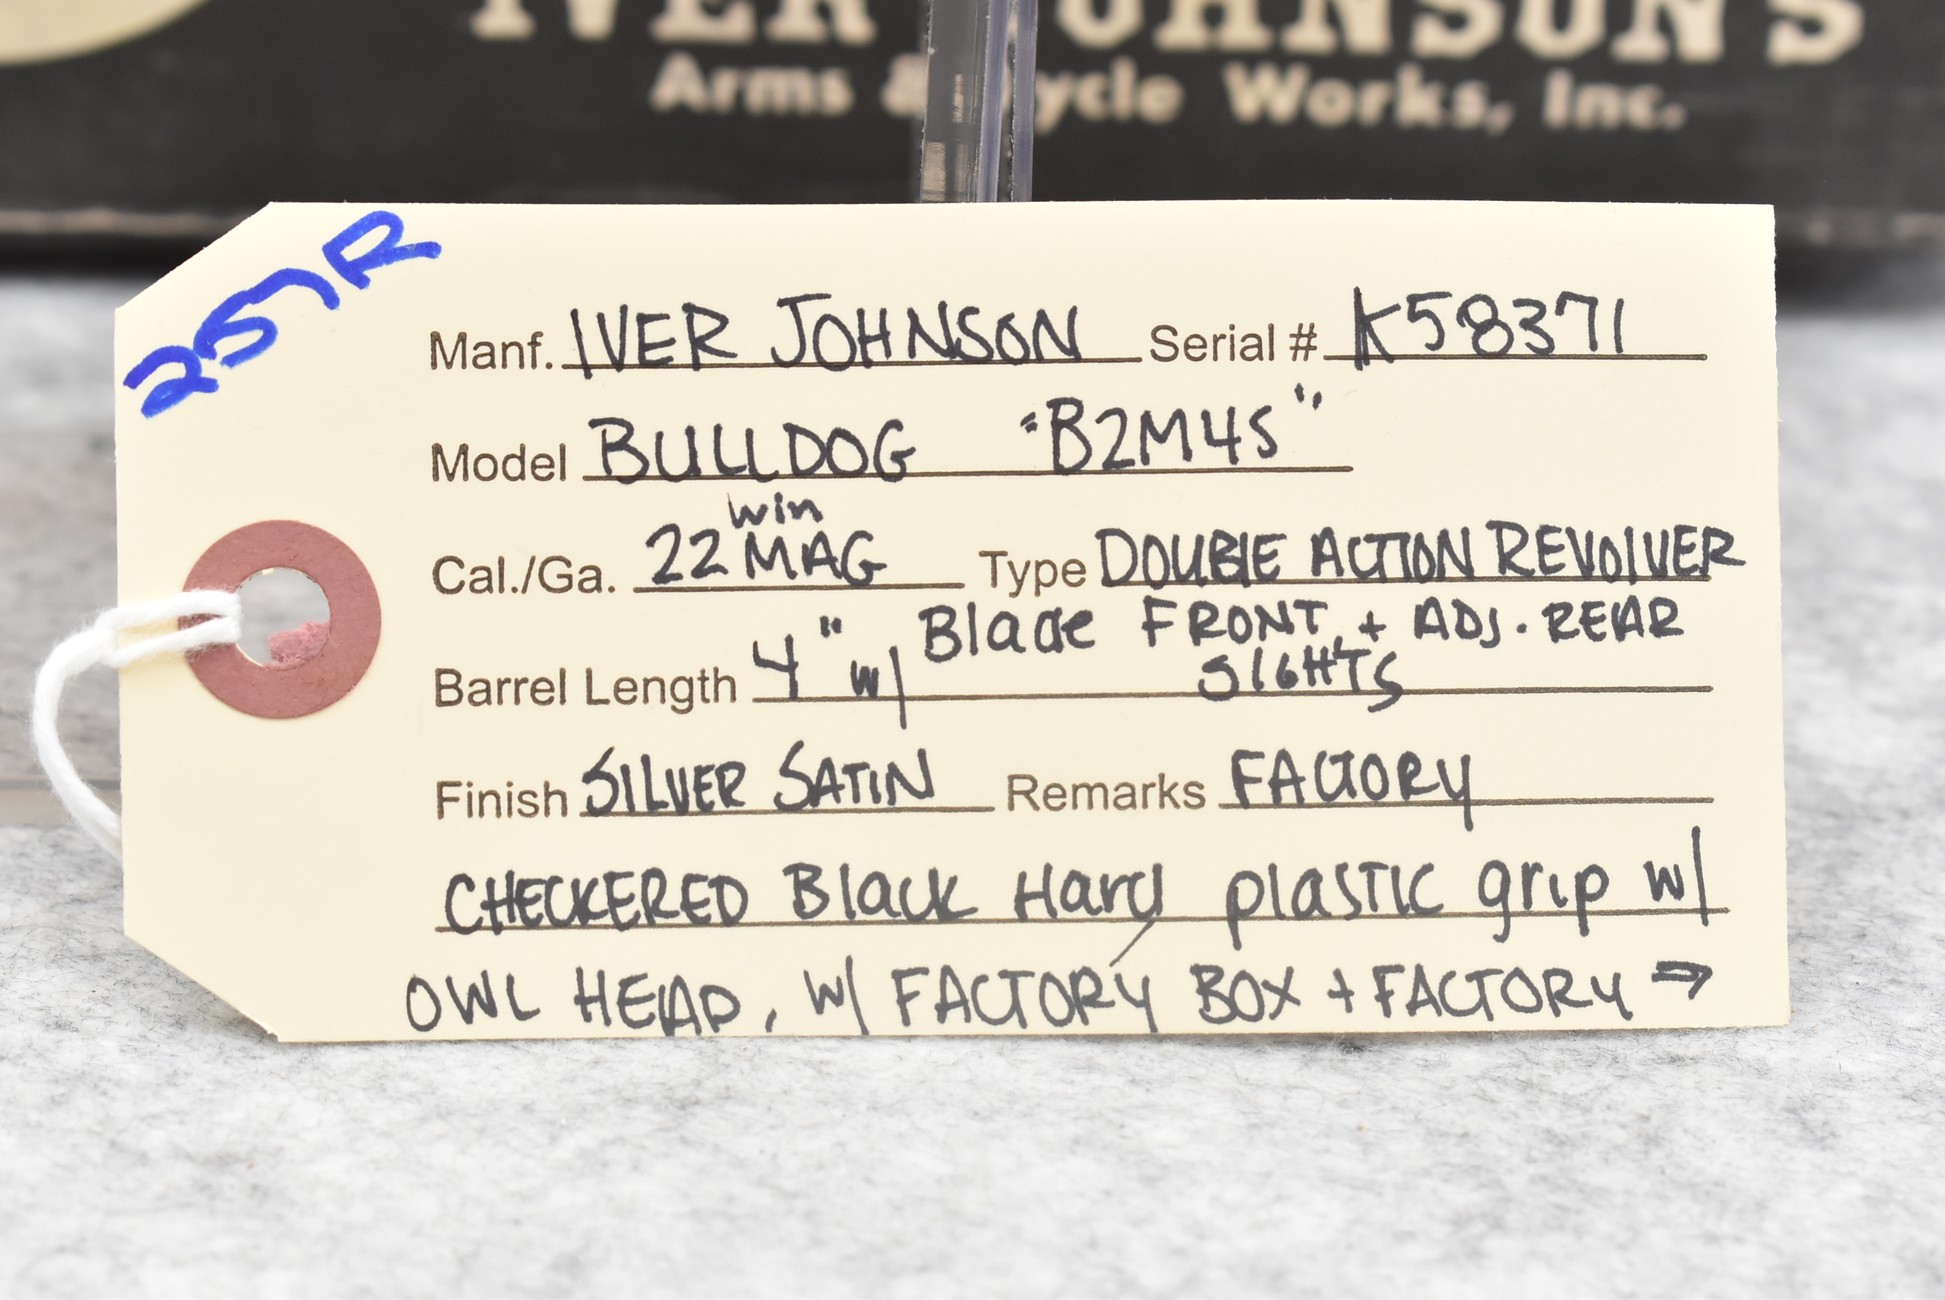 IVER JOHNSON'S
Arms & Cycle Works, Inc.
257R
Manf. IVER JOHNSON Serial # K58371
Model BULLDOG "B2M4S"
Cal./Ga. 22 Win MAG Type DOUBLE ACTION REVOLVER
Barrel Length 4" w/ Blade FRONT + ADJ. REAR
SIGHTS
Finish SILVER SATIN Remarks FACTORY
CHECKERED Black Hard plastic grip w/
OWL HEAD, w/ FACTORY BOX + FACTORY →